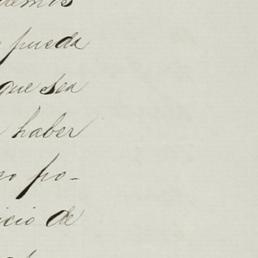 demos
pueda
que sea
haber
po-
icio de